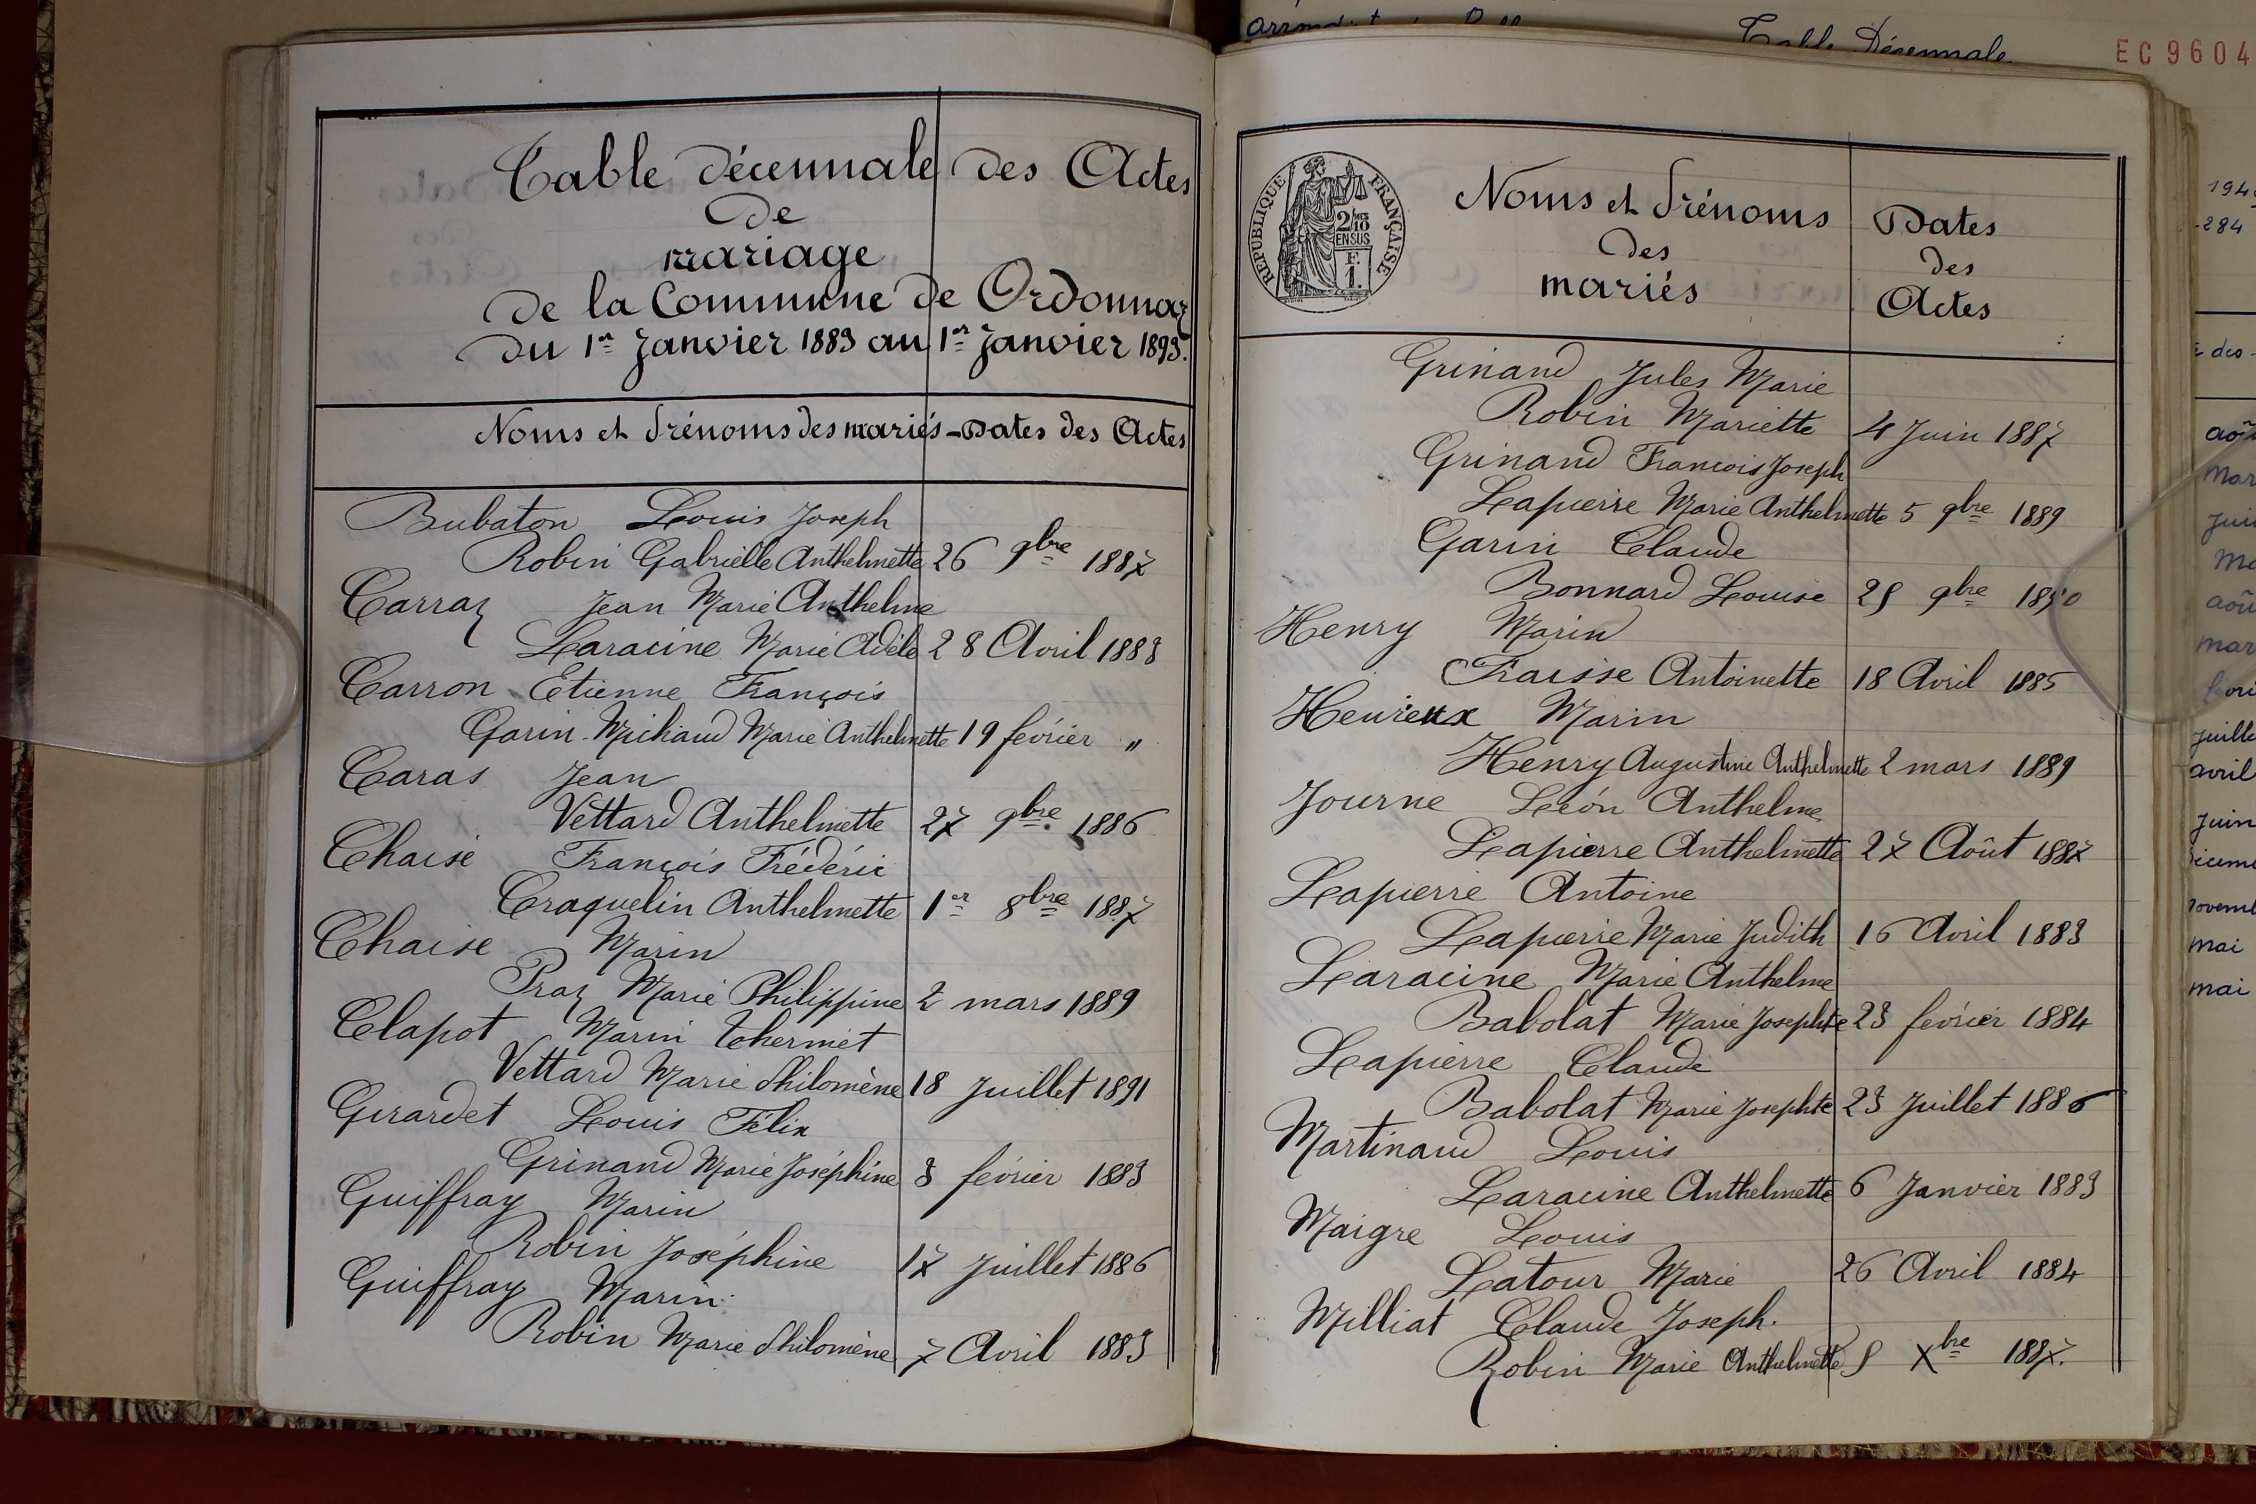 Table décennale des Actes
de
mariage
de la Commune de Ordonnaz
du 1er Janvier 1883 au 1er Janvier 1893.
Noms et Prénoms des mariés - Dates des Actes
Bubaton Louis Joseph
Robin Gabrielle Anthelmette 26 9bre 1887
Carraz Jean Marie Anthelme
Laracine Marie Adèle 28 Avril 1883
Carron Etienne François
Garin-Michaud Marie Anthelmette 19 février "
Caras Jean
Vettard Anthelmette 27 9bre 1886
Chaise François Frédéric
Craquelin Anthelmette 1er 8bre 1887
Chaise Marin
Praz Marie Philippine 2 mars 1889
Clapot Marin
Vettard Marie Philomène 18 Juillet 1891
Girardet Louis Félix
Grinand Marie Joséphine 3 février 1883
Guiffray Marin
Robin Joséphine 17 Juillet 1886
Guiffray Marin
Robin Marie Philomène 7 Avril 1883
Table Décennale
EC 9604
RÉPUBLIQUE FRANÇAISE
2/10
EN SUS
F.
1.
Noms et Prénoms
des
mariés
Dates
des
Actes
Grinand Jules Marie
Robin Mariette 4 Juin 1887
Grinand François Joseph
Lapierre Marie Anthelmette 5 9bre 1889
Garin Claude
Bonnard Louise 9bre
Henry Marin
Fraisse Antoinette 18 Avril 1885
Heurieux Marin
Henry Augustine Anthelmette 2 mars 1889
Journe Léon Anthelme
Lapierre Anthelmette 27 Août 1887
Lapierre Antoine
Lapierre Marie Judith 16 Avril 1883
Laracine Marie Anthelme
Babolat Marie Josephte 23 février 1884
Lapierre Claude
Babolat Marie Josephte 23 Juillet 1886
Martinaud Louis
Laracine Anthelmette 6 Janvier 1883
Maigre Louis
Latour Marie 26 Avril 1884
Milliat Claude Joseph.
Robin Marie Anthelmette 8 Xbre 1887.
284
avril
juin
mai
mai